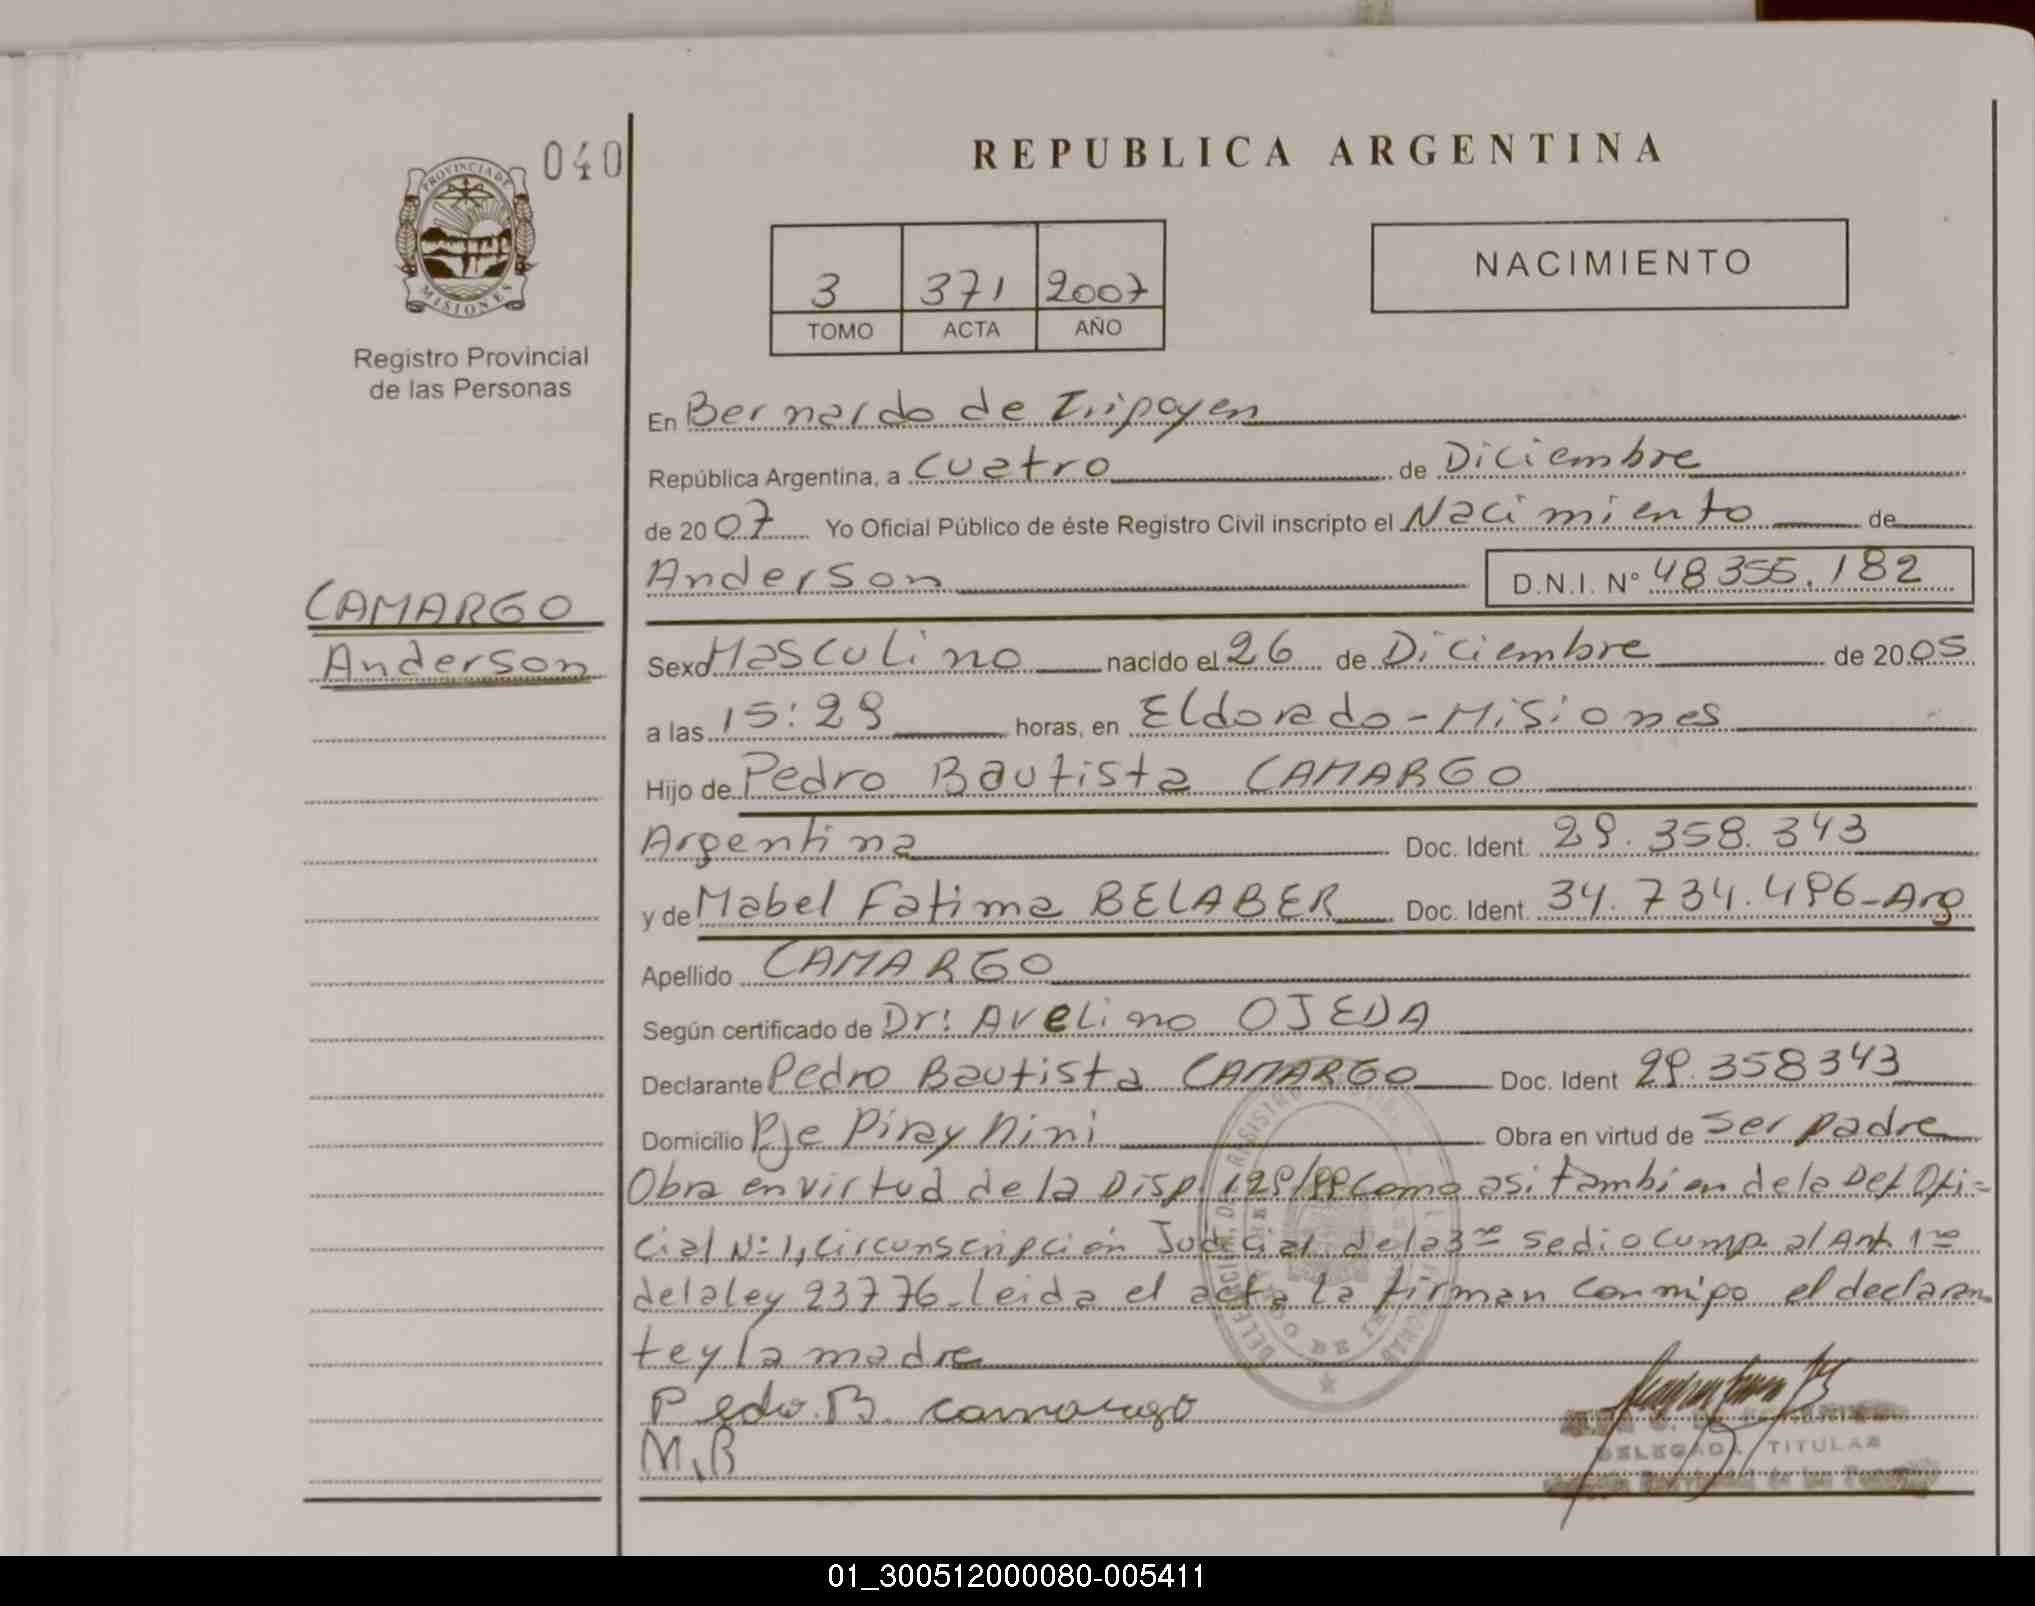 040
PROVINCIA DE
MISIONES
Registro Provincial
de las Personas
CAMARGO
Anderson
REPUBLICA ARGENTINA
3 371 2007
TOMO ACTA AÑO
NACIMIENTO
En Bernardo de Irigoyen
República Argentina, a Cuatro de Diciembre
de 2007 Yo Oficial Público de éste Registro Civil inscripto el Nacimiento de
Anderson D.N.I. N° 48355.182
Sexo Masculino nacido el 26 de Diciembre de 2005
a las 15:29 horas, en Eldorado - Misiones
Hijo de Pedro Bautista CAMARGO
Argentina Doc. Ident. 29.358.343
y de Mabel Fatima BELABER Doc. Ident. 34.734.496-Arg
Apellido CAMARGO
Según certificado de Dr: Avelino OJEDA
Declarante Pedro Bautista CAMARGO Doc. Ident 29.358343
Domicilio Pje Piray Mini Obra en virtud de ser padre
Obra en virtud de la Disp 129/99 como asi tambien de la Def Ofi=
cial N° 1, Circunscripción Judicial de la 3ra se dio cump. al Art 1ro
de la ley 23776. leida el acta la firman conmigo el declaran
te y la madre
Pedro. B. camargo
M. B
DELEGADA TITULAR
01_300512000080-005411